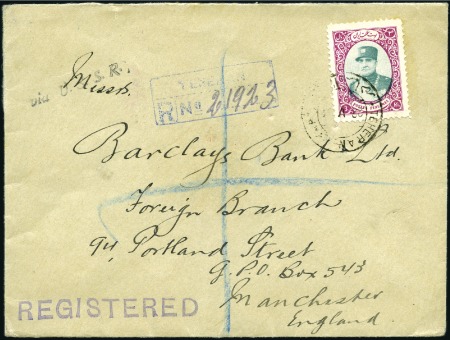 via U.S.S.R.
TEHERAN
R No 21923
Messrs.
TEHERAN
Barclays Bank Ltd.
Foreign Branch
94, Portland Street
G.P.O. Box 543
Manchester
England.
REGISTERED